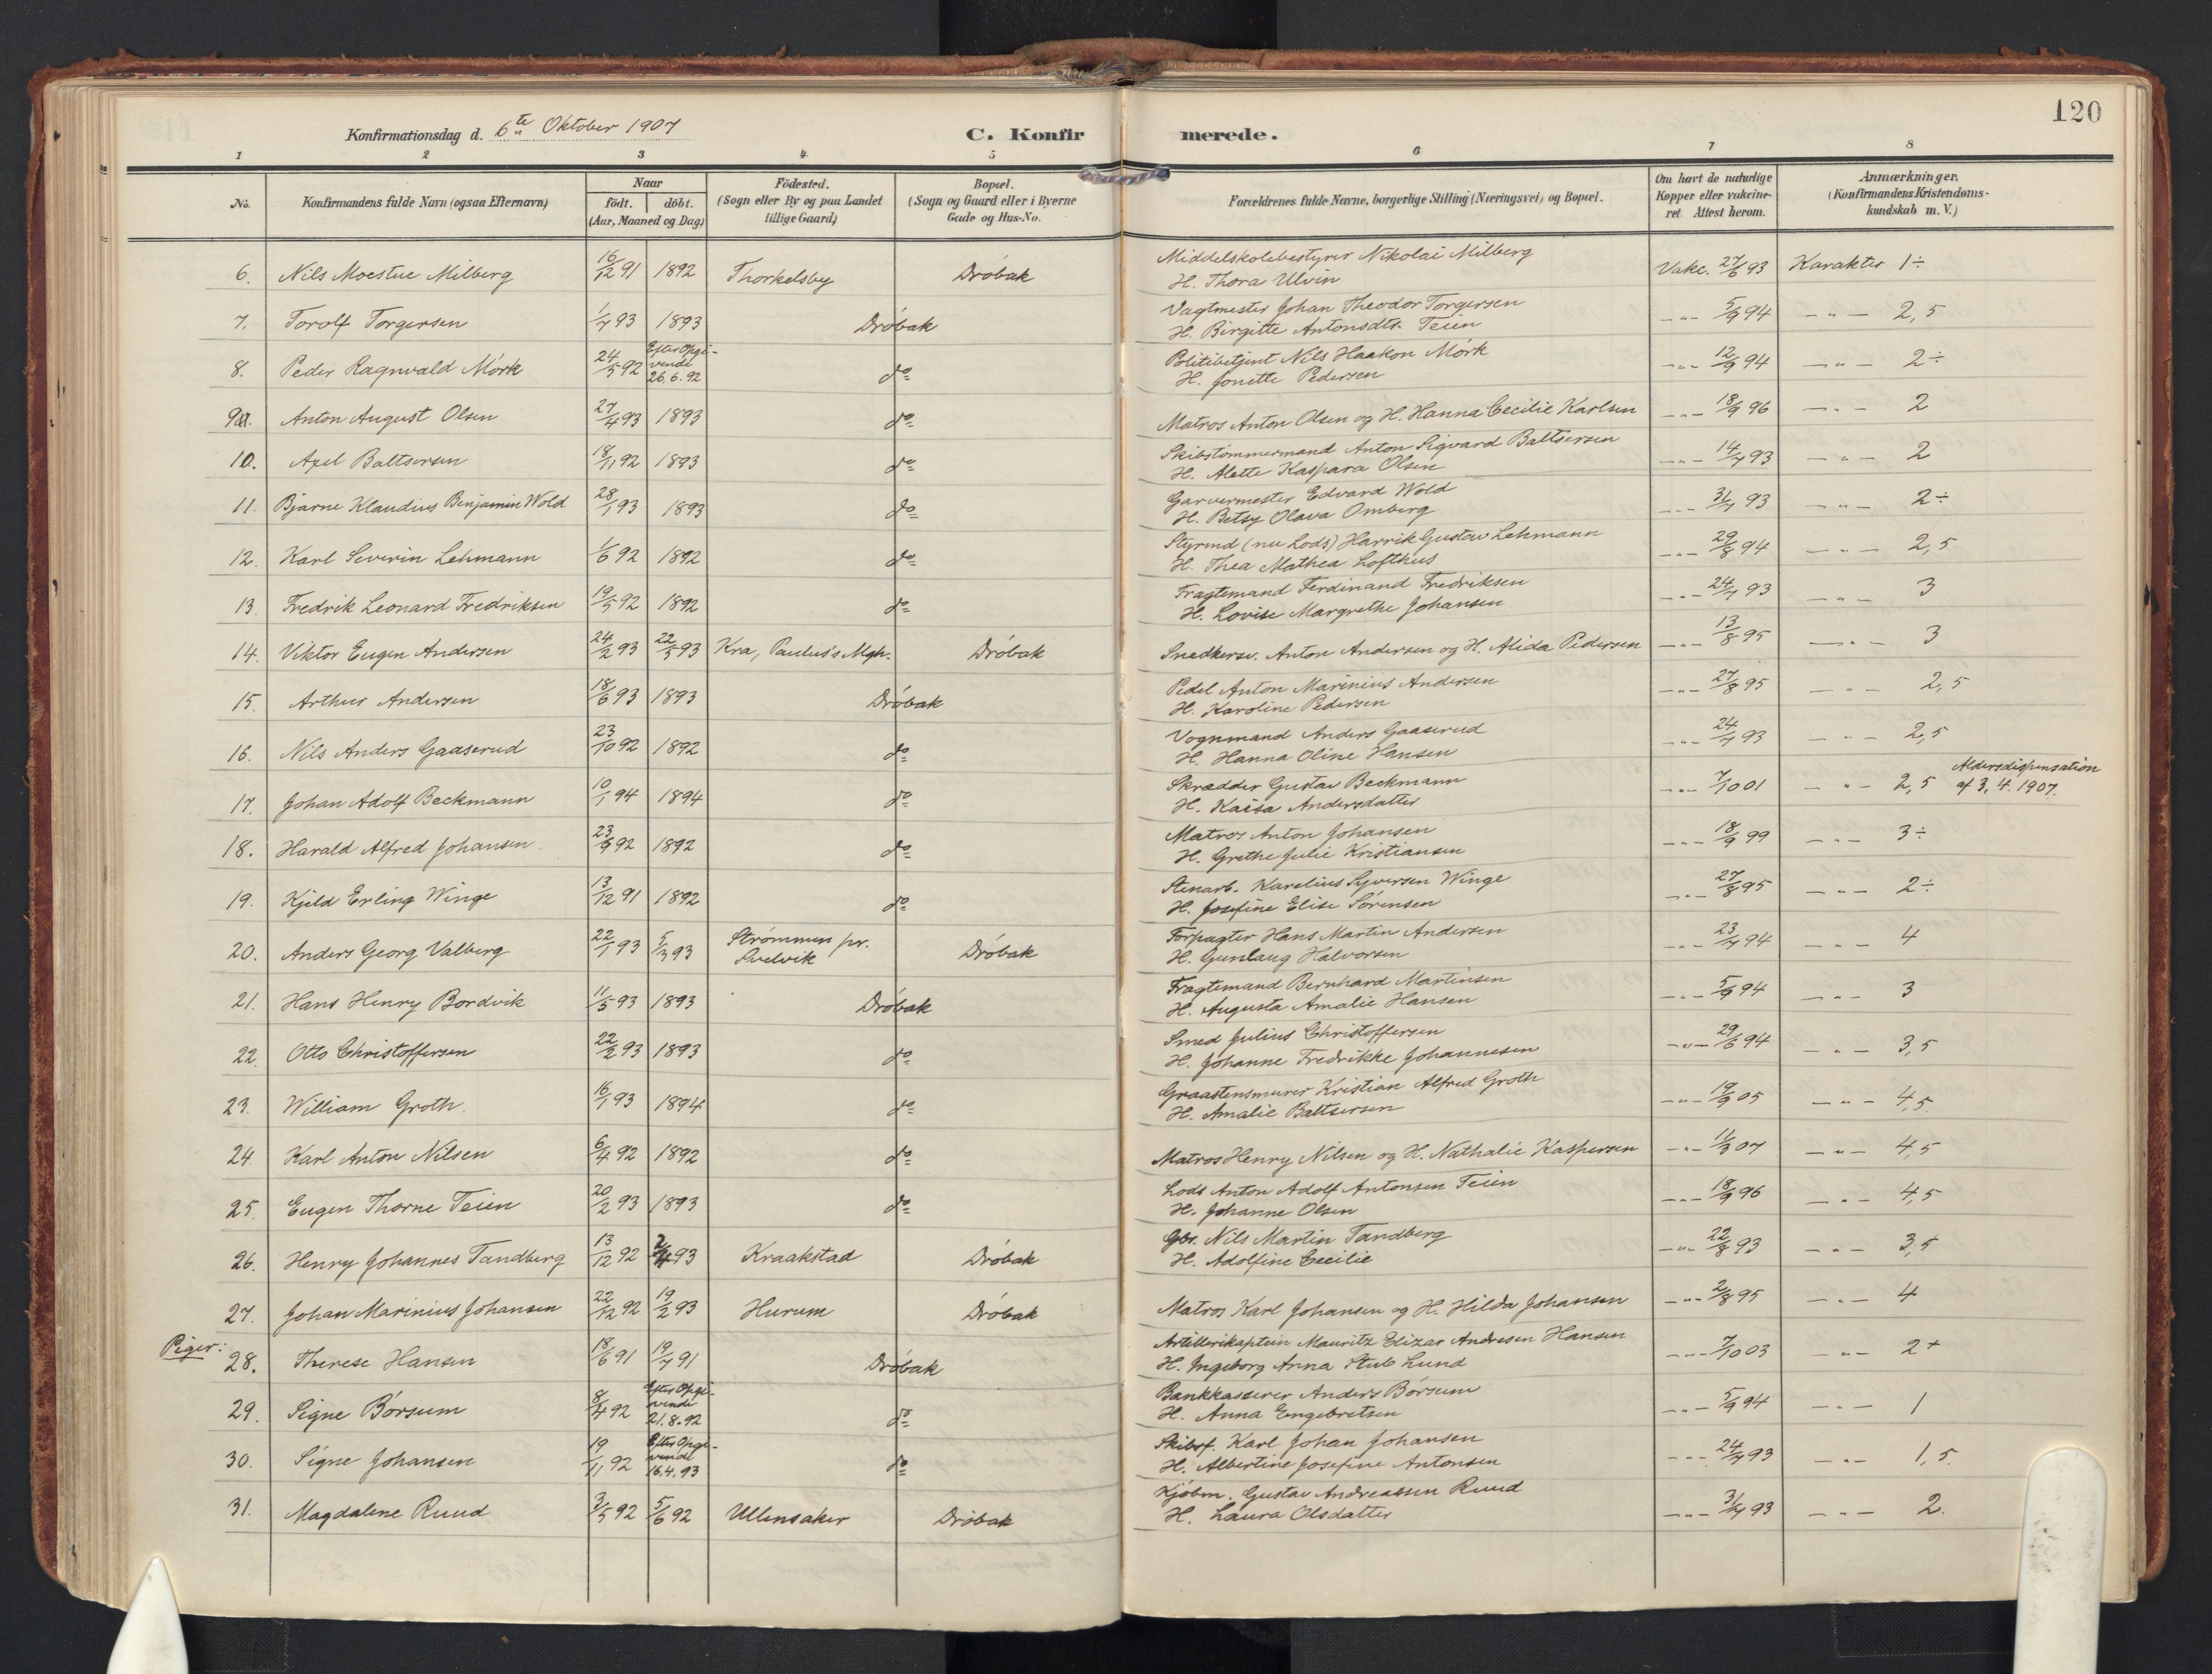 120
Konfirmationsdag d. 6te Oktober 1907 C. Konfir merede.
1 2 3 4 5 6 7 8
No. Konfirmandens fulde Navn (ogsaa Efternavn) Naar födt. döbt. (Aar, Maaned og Dag) Födested. (Sogn eller By og paa Landet tillige Gaard) Bopæl. (Sogn og Gaard eller i Byerne Gade og Hus-No. Forældrenes fulde Navne, borgerlige Stilling (Næringsvei) og Bopæl. Om havt de naturlige Kopper eller vakcineret. Attest herom. Anmærkninger. (Konfirmandens Kristendomskundskab m. V.)
6. Nils Moestue Milberg 16/12 91 1892 Thorkelsby Drøbak Middelskolebestyrer Nikolai Milberg H. Thora Ulvin Vakc. 27/6 93 Karakter 1÷
7. Torolf Torgersen 1/7 93 1893 Drøbak Vagtmester Johan Theodor Torgersen H. Birgitte Antonsdtr. Teien -"- 5/9 94 -"- 2,5
8. Peder Ragnvald Mörk 24/5 92 Efter Opgivende 26.6.92 do Politibetjent Nils Haakon Mörk H. Jonette Pedersen -"- 12/9 94 -"- 2÷
9. Anton August Olsen 27/4 93 1893 do Matros Anton Olsen og H. Hanna Cecilie Karlsen -"- 18/9 96 -"- 2
10. Axel Baltsersen 18/11 92 1893 do Skibstømmermand Anton Sigvard Baltsersen H. Alette Kaspara Olsen -"- 14/7 93 -"- 2
11. Bjarne Klaudius Benjamin Wold 28/1 93 1893 do Garvermester Edvard Wold H. Betsy Olava Omberg -"- 31/7 93 -"- 2÷
12. Karl Severin Lehmann 1/6 92 1892 do Styrmd (nu Lods) Harrik Gustav Lehmann H. Thea Mathea Lofthus -"- 29/8 94 -"- 2,5
13. Fredrik Leonard Fredriksen 19/5 92 1892 do Fragtemand Ferdinand Fredriksen H. Lovise Margrethe Johansen -"- 24/7 93 -"- 3
14. Viktor Eugen Andersen 24/2 93 22/5 93 Kra, Paulus's Mgh. Drøbak Snedkersv. Anton Andersen og H. Alida Pedersen -"- 13/8 95 -"- 3
15. Arthur Andersen 18/6 93 1893 Drøbak Pedel Anton Marinius Andersen H. Karoline Pedersen -"- 27/8 95 -"- 2,5
16. Nils Anders Gaaserud 23/10 92 1892 do Vognmand Anders Gaaserud H. Hanna Oline Hansen -"- 24/7 93 -"- 2,5
17. Johan Adolf Beckmann 10/1 94 1894 do Skrædder Gustav Beckmann H. Kaisa Andersdatter -"- 7/10 01 -"- 2,5 Aldersdispensation af 3.4.1907.
18. Harald Alfred Johansen 23/9 92 1892 do Matros Anton Johansen H. Grethe Julie Kristiansen -"- 18/9 99 -"- 3÷
19. Kjeld Erling Winge 13/12 91 1892 do Stenarb. Karelius Syversen Winge H. Josefine Elise Sørensen -"- 27/8 95 -"- 2÷
20. Anders Georg Valberg 22/1 93 5/3 93 Strømmen pr. Svelvik Drøbak Forpagter Hans Martin Andersen H. Gunlaug Halvorsen -"- 23/7 94 -"- 4
21. Hans Henry Bordvik 11/5 93 1893 Drøbak Fragtemand Bernhard Martinsen H. Augusta Amalie Hansen -"- 5/9 94 -"- 3
22. Otto Christoffersen 22/2 93 1893 do Smed Julius Christoffersen H. Johanne Fredrikke Johannesen -"- 29/6 94 -"- 3,5
23. William Groth. 16/1 93 1894 do Graastensmurer Kristian Alfred Groth H. Amalie Baltsersen -"- 19/9 05 -"- 4,5
24. Karl Anton Nilsen 6/4 92 1892 do Matros Henry Nilsen og H. Nathalie Kaspersen -"- 11/3 07 -"- 4,5
25. Eugen Thorne Teien 20/2 93 1893 do Lods Anton Adolf Antonsen Teien H. Johanne Olsen -"- 18/9 96 -"- 4,5
26. Henry Johannes Tandberg 13/12 92 2/4 93 Kraakstad Drøbak Gbr. Nils Martin Tandberg H. Adolfine Cecilie -"- 22/8 93 -"- 3,5
27. Johan Marinius Johansen 22/12 92 19/2 93 Hurum Drøbak Matros Karl Johansen og H. Hilda Johansen -"- 2/8 95 -"- 4
Piger:
28. Therese Hansen 18/6 91 19/7 91 Drøbak Artillerikaptein Mauritz Elizar Andresen Hansen H. Ingeborg Anna Stub Lund -"- 7/10 03 -"- 2+
29. Signe Børsum 8/4 92 Efter Opgivende 21.8.92 do Bankkasserer Anders Børsum H. Anna Engebretsen -"- 5/9 94 -"- 1
30. Signe Johansen 19/11 92 Efter Opgivende 16.4.93 do Skibsf. Karl Johan Johansen H. Albertine Josefine Antonsen -"- 24/7 93 -"- 1,5
31. Magdalene Ruud 3/5 92 5/6 92 Ullensaker Drøbak Kjøbm. Gustav Andreassen Ruud H. Laura Olsdatter -"- 31/7 93 -"- 2.